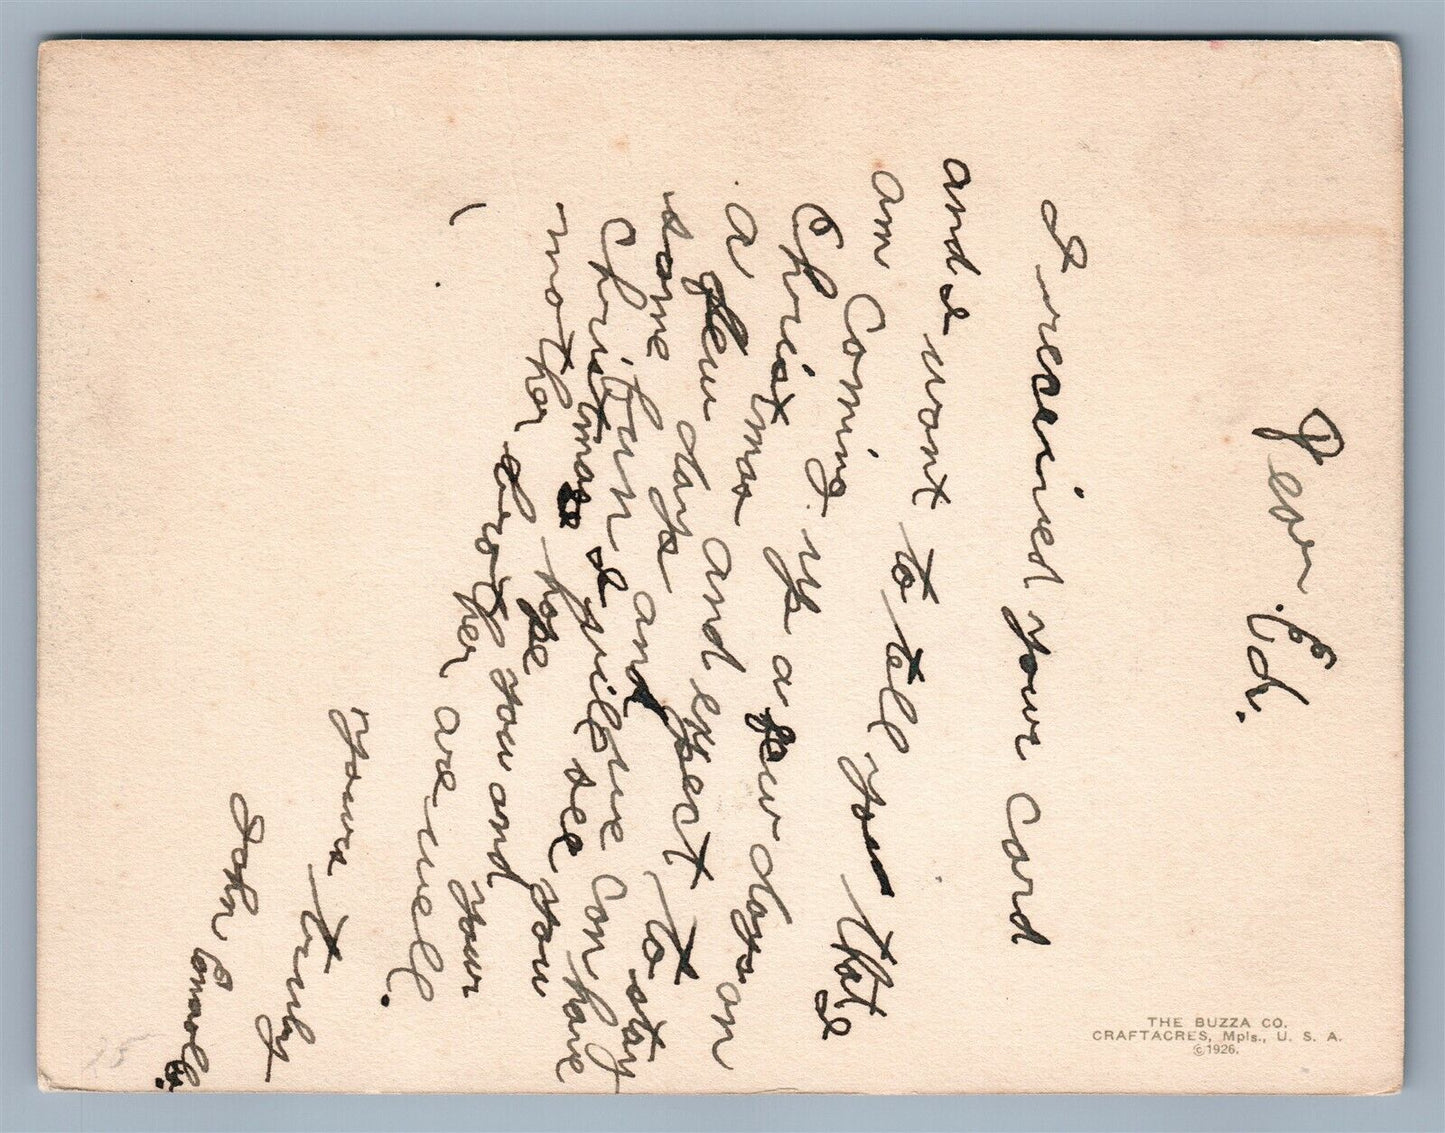 Dear Ed.
I received your card
and I wont to tell you that I
am Coming up a few days on
Christmas and expect to stay
a few days and we can have
some fun I will see you
Christmas I hope you and your
mother brother are well.
Yours truly
John
THE BUZZA CO.
CRAFTACRES, Mpls., U. S. A.
©1926.
25